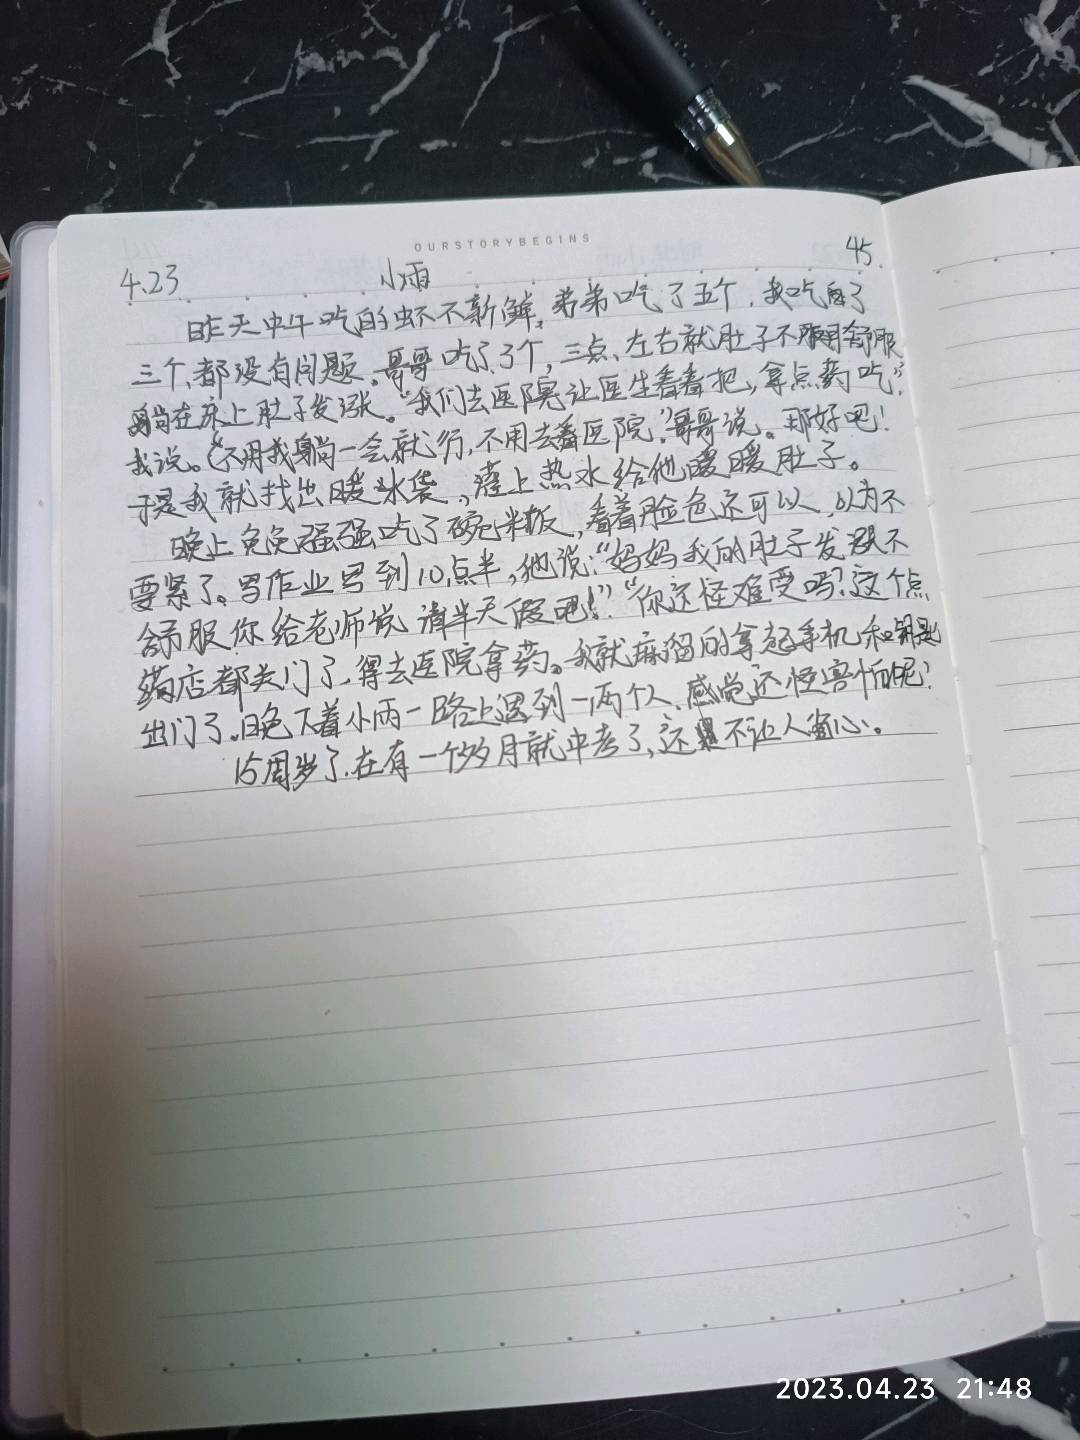 OURSTORYBEGINS
4.23 小雨 45.
昨天中午吃的虾不新鲜,弟弟吃了五个,我吃了
三个,都没有问题。哥哥吃了3个,三点、左右就肚子不舒服
躺在床上肚子发涨。“我们去医院让医生看看把,拿点药吃?”
我说。“不用我躺一会就行,不用去看医院。”哥哥说。那好吧!
于是我就找出暖水袋,灌上热水给他暖暖肚子。
晚上免免强强吃了碗米饭,看着脸色还可以,以为不
要紧了。写作业写到10点半,他说:“妈妈我的肚子发涨不
舒服你给老师说请半天假吧!”“你这怪难受吗?这个点
药店都关门了,得去医院拿药。我就麻留的拿起手机和钥匙
出门了。晚下着小雨一路上遇到一两个人,感觉还怪害怕呢!
15周岁了,在有一个多月就中考了,还不让人省心。
2023.04.23 21:48